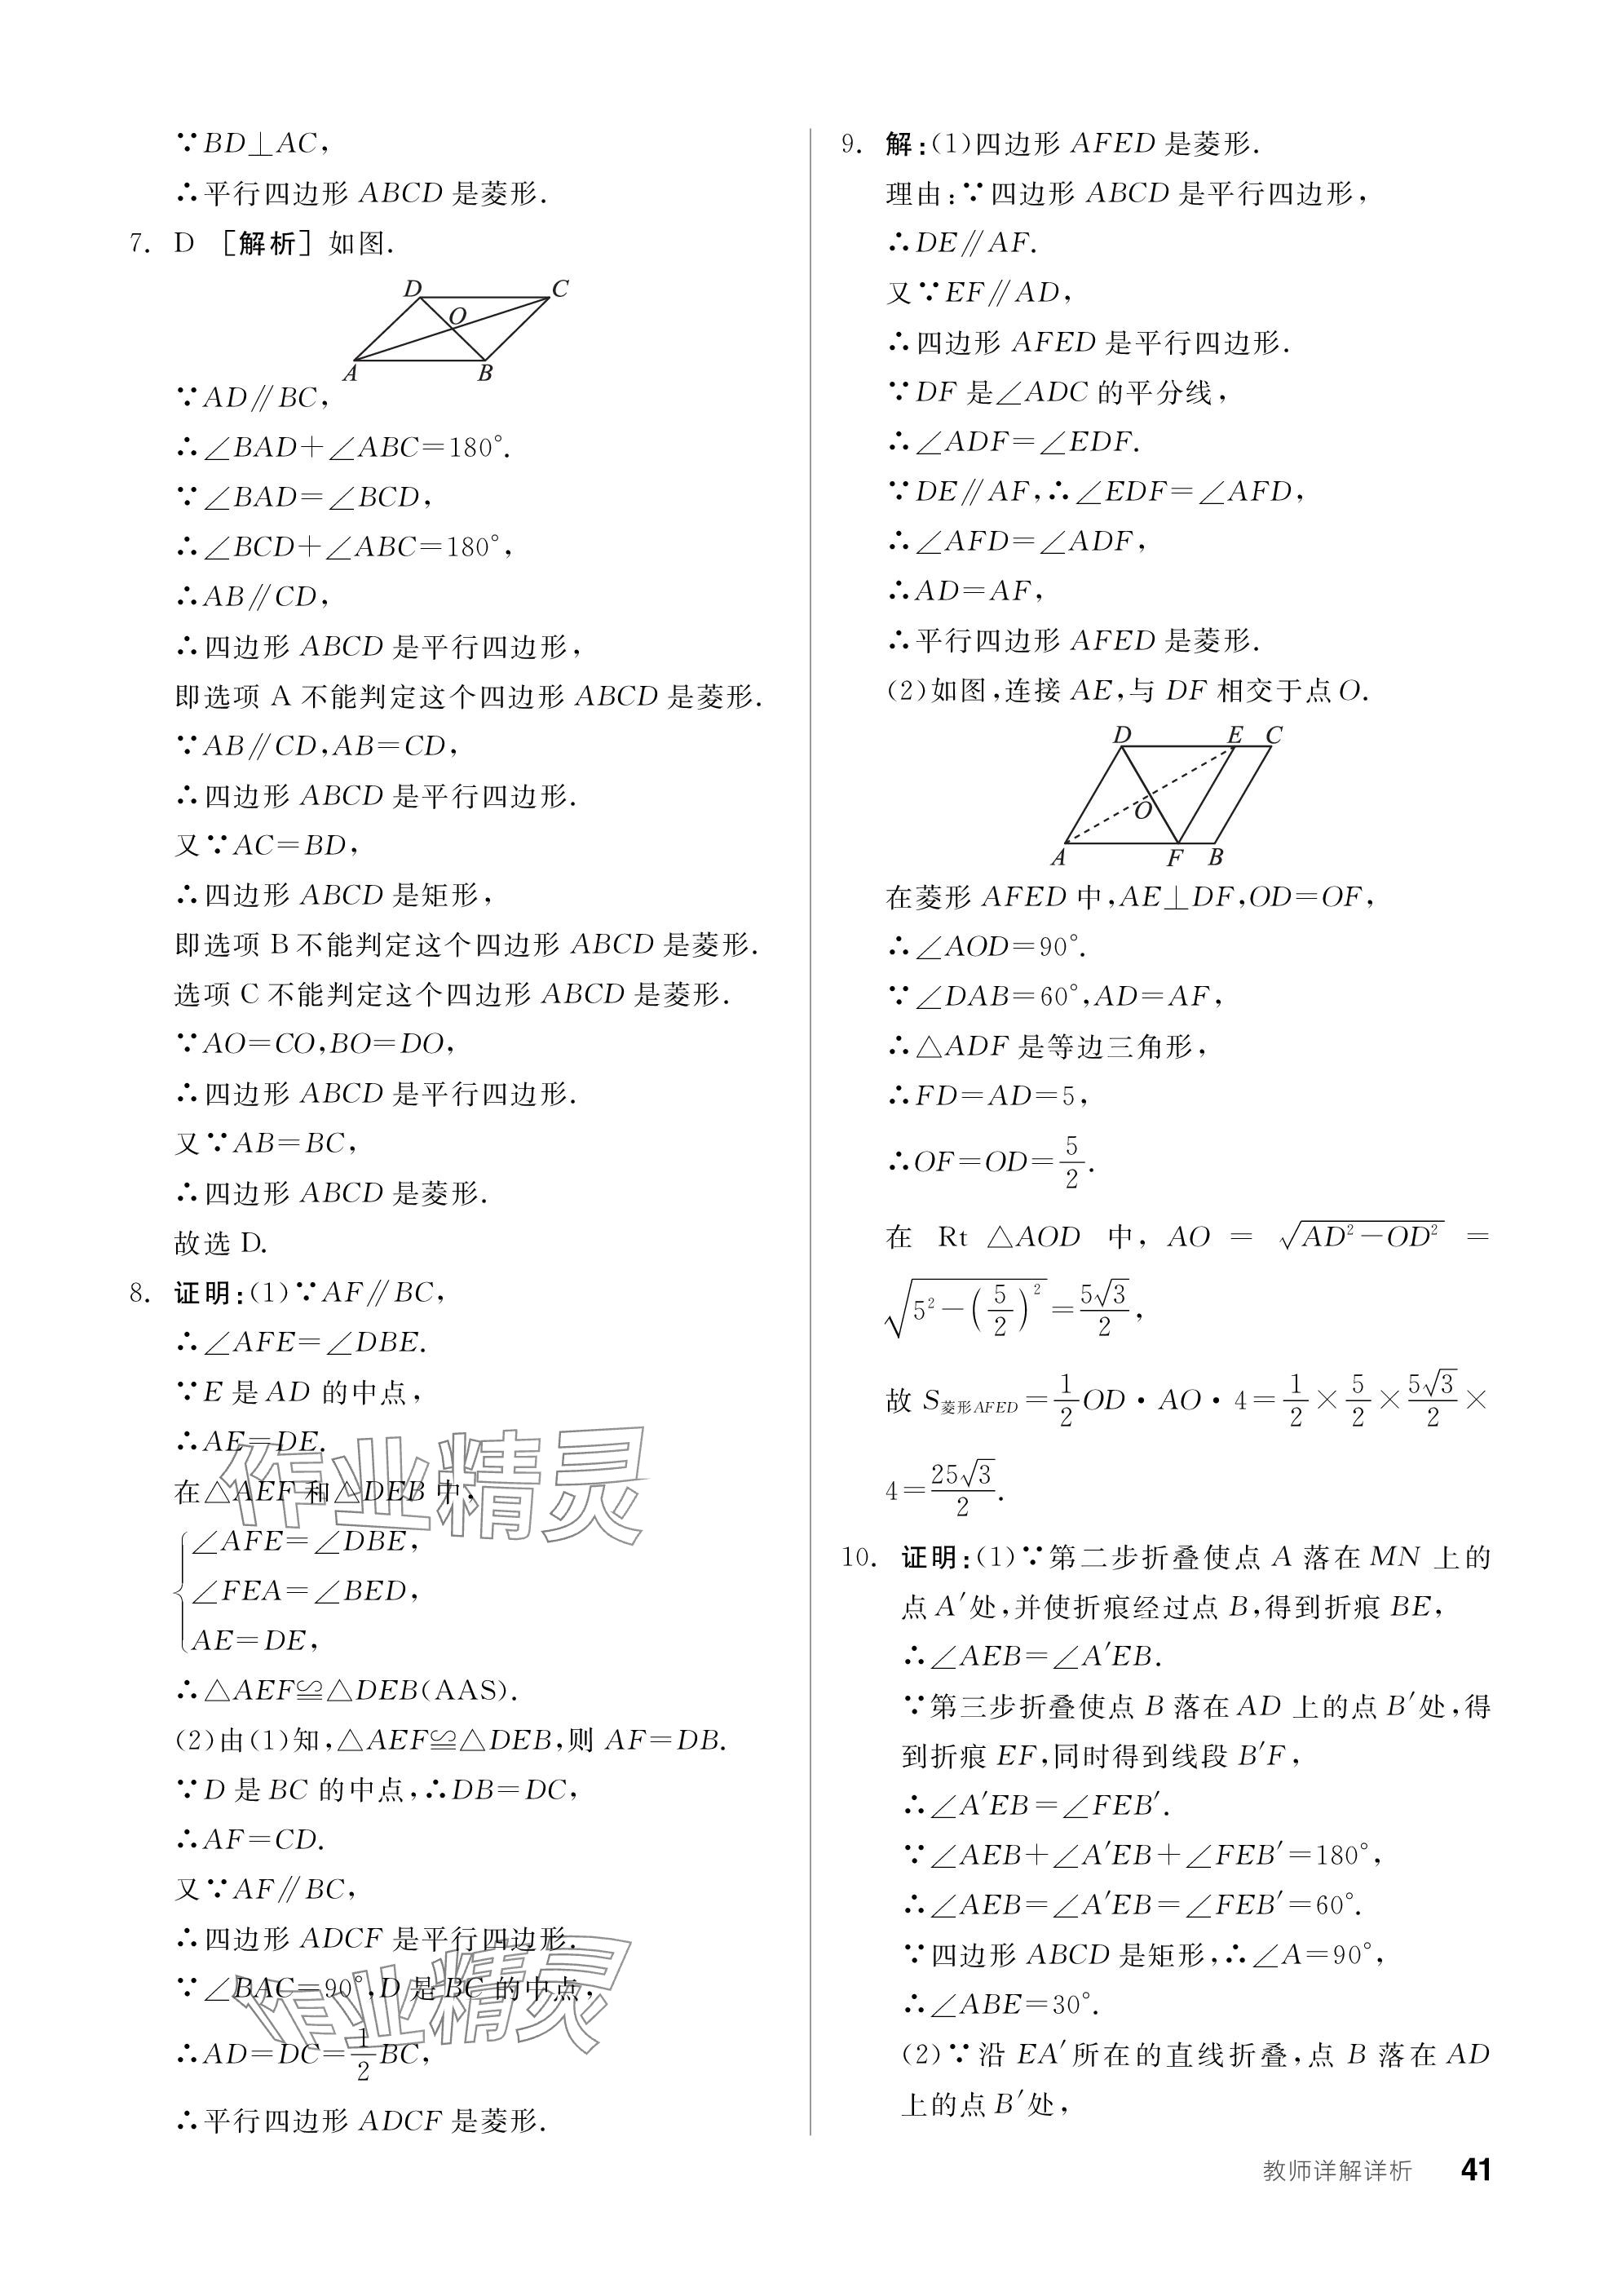 ∵BD⊥AC,
∴平行四边形 ABCD 是菱形.
7. D [解析] 如图.
D C
O
A B
∵AD∥BC,
∴∠BAD+∠ABC=180°.
∵∠BAD=∠BCD,
∴∠BCD+∠ABC=180°,
∴AB∥CD,
∴四边形 ABCD 是平行四边形,
即选项 A 不能判定这个四边形 ABCD 是菱形.
∵AB∥CD,AB=CD,
∴四边形 ABCD 是平行四边形.
又∵AC=BD,
∴四边形 ABCD 是矩形,
即选项 B 不能判定这个四边形 ABCD 是菱形.
选项 C 不能判定这个四边形 ABCD 是菱形.
∵AO=CO,BO=DO,
∴四边形 ABCD 是平行四边形.
又∵AB=BC,
∴四边形 ABCD 是菱形.
故选 D.
8. 证明:(1)∵AF∥BC,
∴∠AFE=∠DBE.
∵E 是 AD 的中点,
∴AE=DE.
在△AEF 和△DEB 中,
∠AFE=∠DBE,
∠FEA=∠BED,
AE=DE,
∴△AEF≌△DEB(AAS).
(2)由(1)知,△AEF≌△DEB,则 AF=DB.
∵D 是 BC 的中点,∴DB=DC,
∴AF=CD.
又∵AF∥BC,
∴四边形 ADCF 是平行四边形.
∵∠BAC=90°,D 是 BC 的中点,
∴AD=DC=1/2 BC,
∴平行四边形 ADCF 是菱形.
作业精灵
作业精灵
9. 解:(1)四边形 AFED 是菱形.
理由:∵四边形 ABCD 是平行四边形,
∴DE∥AF.
又∵EF∥AD,
∴四边形 AFED 是平行四边形.
∵DF 是∠ADC 的平分线,
∴∠ADF=∠EDF.
∵DE∥AF,∴∠EDF=∠AFD,
∴∠AFD=∠ADF,
∴AD=AF,
∴平行四边形 AFED 是菱形.
(2)如图,连接 AE,与 DF 相交于点 O.
D E C
O
A F B
在菱形 AFED 中,AE⊥DF,OD=OF,
∴∠AOD=90°.
∵∠DAB=60°,AD=AF,
∴△ADF 是等边三角形,
∴FD=AD=5,
∴OF=OD=5/2.
在 Rt △AOD 中, AO = √(AD²-OD²) =
√(5²-(5/2)²)=5√3/2,
故 S菱形AFED=1/2 OD·AO·4=1/2×5/2×5√3/2×
4=25√3/2.
10. 证明:(1)∵第二步折叠使点 A 落在 MN 上的
点 A′处,并使折痕经过点 B,得到折痕 BE,
∴∠AEB=∠A′EB.
∵第三步折叠使点 B 落在 AD 上的点 B′处,得
到折痕 EF,同时得到线段 B′F,
∴∠A′EB=∠FEB′.
∵∠AEB+∠A′EB+∠FEB′=180°,
∴∠AEB=∠A′EB=∠FEB′=60°.
∵四边形 ABCD 是矩形,∴∠A=90°,
∴∠ABE=30°.
(2)∵沿 EA′所在的直线折叠,点 B 落在 AD
上的点 B′处,
教师详解详析 41